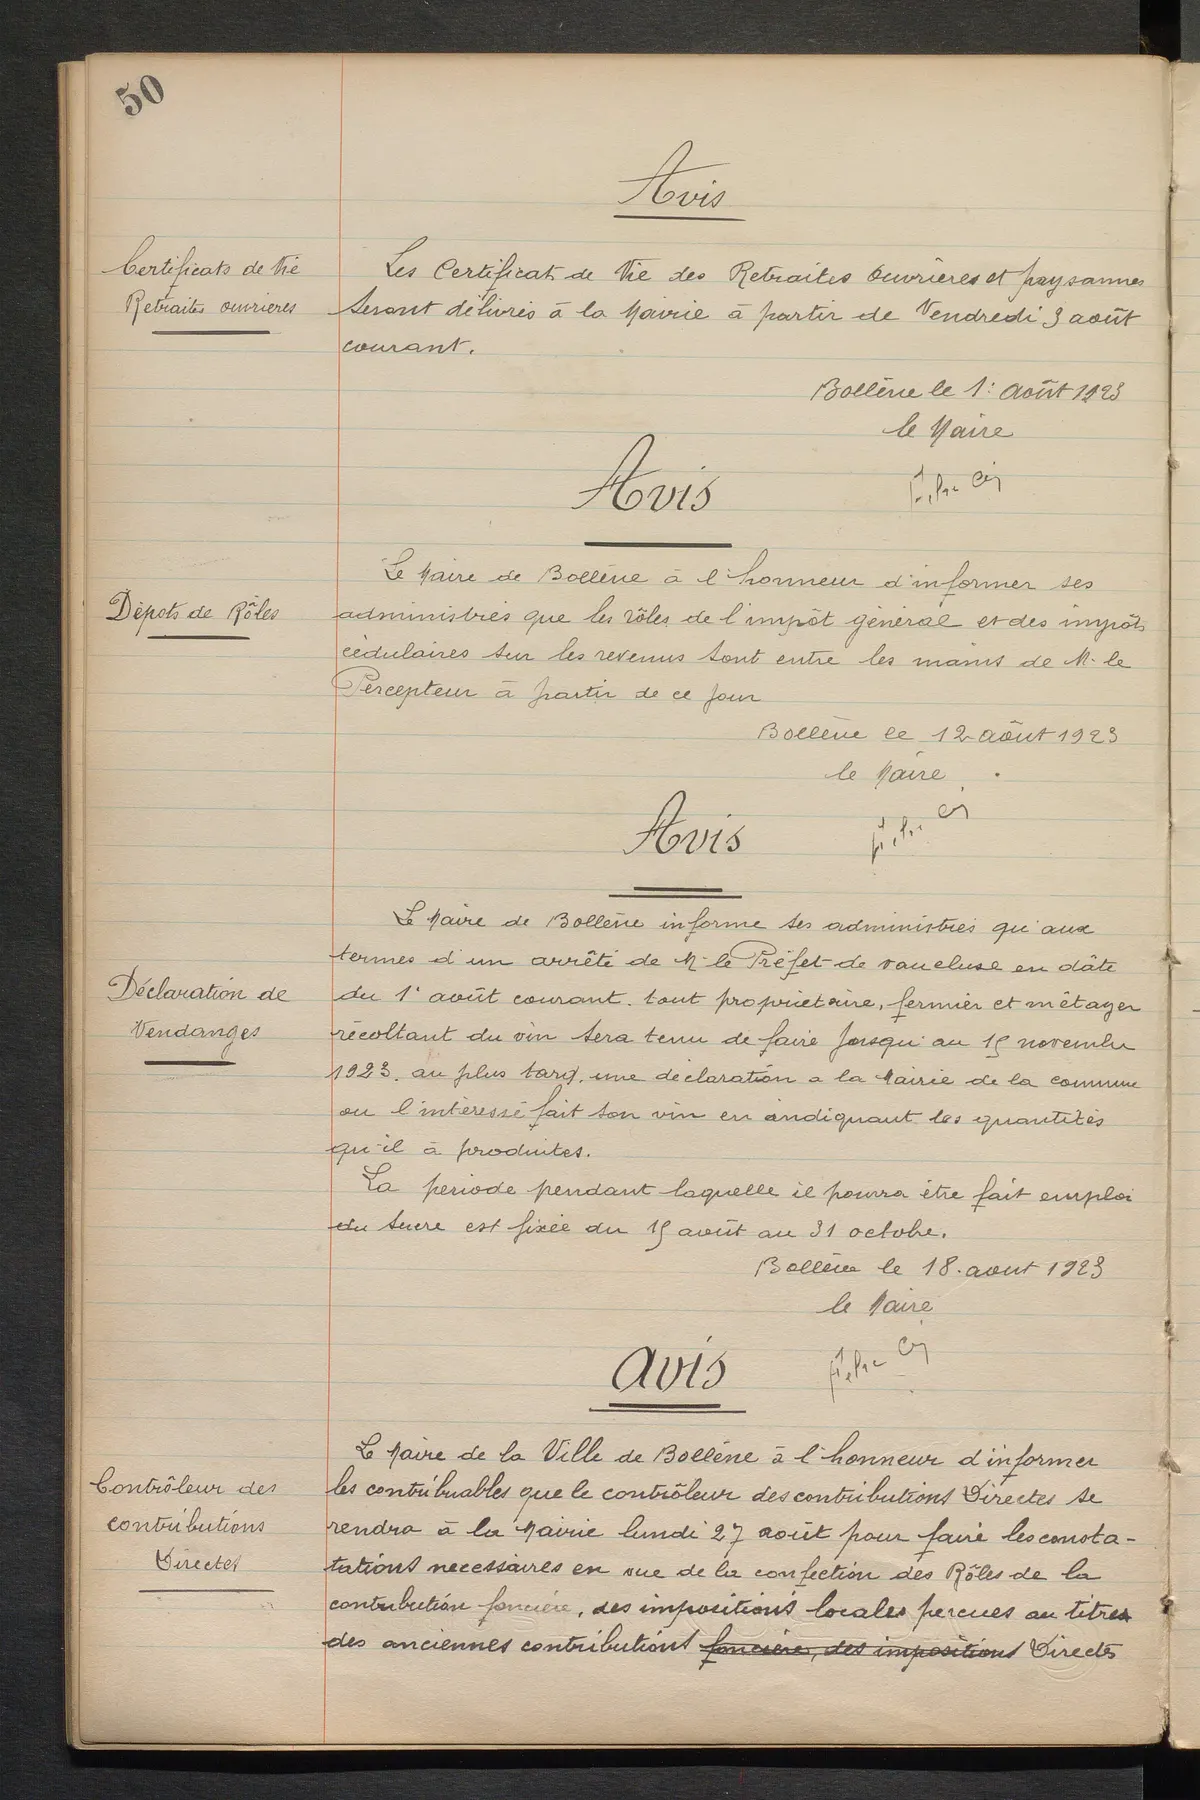 50
Avis
Certificats de Vie
Retraites ouvrières
Les Certificat de Vie des Retraites Ouvrières et paysannes
seront délivrés à la Mairie à partir de Vendredi 3 août
courant.
Bollène le 1: Août 1923
le Maire
Avis
Dépots de Rôles
Le Maire de Bollène à l'honneur d'informer ses
administrés que les rôles de l'impôt général et des impôts
cédulaires sur les revenus sont entre les mains de M. le
Percepteur à partir de ce jour
Bollène le 12 août 1923
le Maire
Avis
Déclaration de
Vendanges
Le Maire de Bollène informe ses administrés qu'aux
termes d'un arrêté de M. le Préfet de vaucluse en dâte
du 1' août courant. tout propriétaire, fermier et métayer
récoltant du vin sera tenu de faire jusqu'au 15 novembre
1923. au plus tard, une déclaration a la Mairie de la commune
ou l'intéressé fait son vin en indiquant les quantités
qu'il à produites.
La periode pendant laquelle il pourra être fait emploi
du sucre est fixée du 15 août au 31 octobre.
Bollène le 18 aout 1923
le Maire
avis
Contrôleur des
contributions
Directes
Le Maire de la Ville de Bollène à l'honneur d'informer
les contribuables que le contrôleur des contributions Directes se
rendra à la Mairie lundi 27 août pour faire les consta-
tations necessaires en vue de la confection des Rôles de la
contribution foncière, des impositions locales percues au titres
des anciennes contributions foncière, des impositions Directs